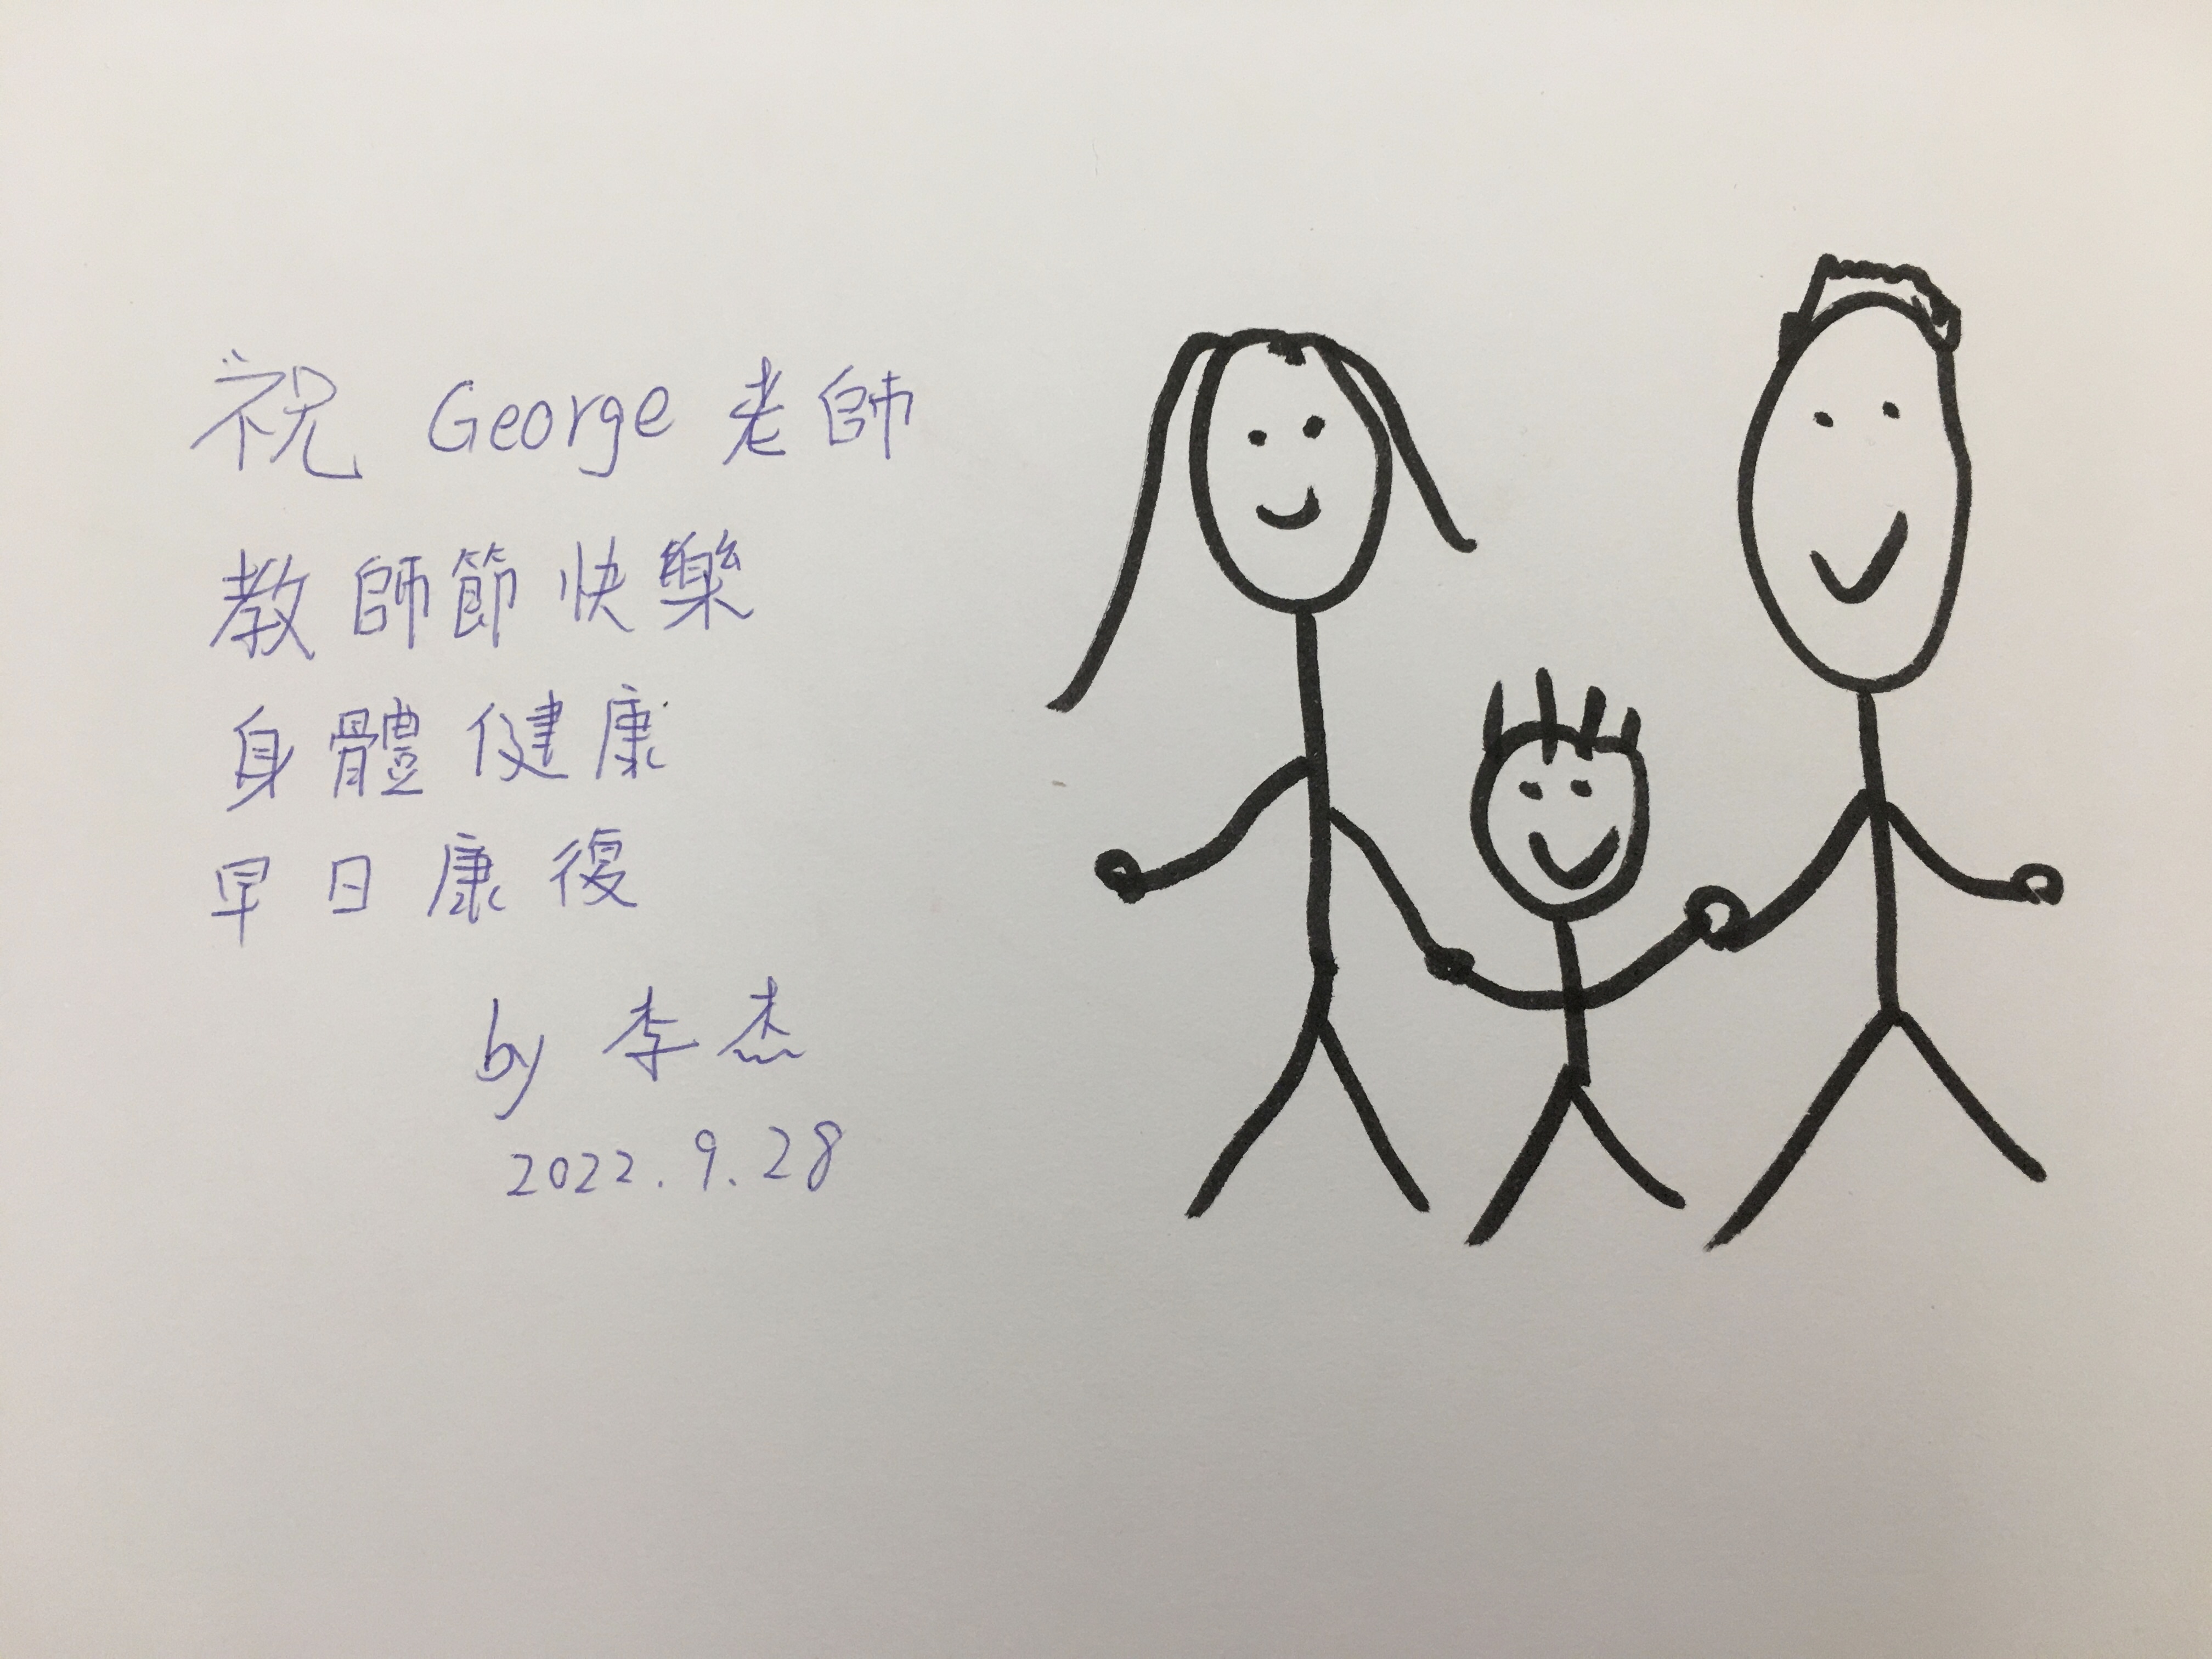 祝 George 老師
教師節快樂
身體健康
早日康復
by 李杰
2022.9.28